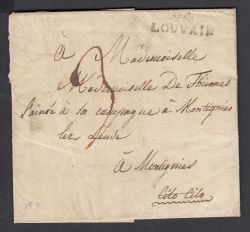 LOUVAIN
à Mademoiselle
Mademoiselle De Thiennes
l'ainée à sa campagne à Montignies
lez Leuse
à Montignies
Cito Cito